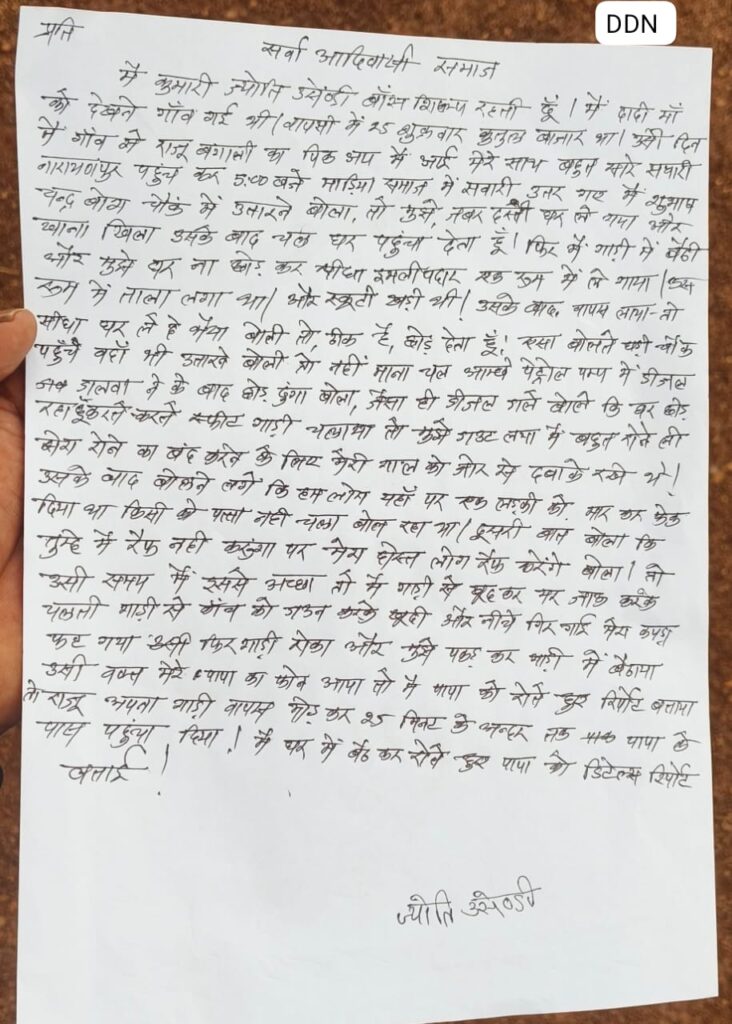 DDN
प्रति
सर्वा आदिवासी समाज
मै कुमारी ज्योति उसेण्डी बाँस शिल्प रहती हूँ। मैं दादी माँ
को देखने गाँव गई थी। वापसी में 25 शुक्रवार कुतुल बाजार था। उसी दिन
मैं गाँव से राजू बंगाली का पिक अप में आई मेरे साथ बहुत सारे सवारी
नारायणपुर पहुँच कर 5:00 बजे माड़िया समाज में सवारी उतर गए मैं शुभाष
चन्द्र बोस चौक में उतारने बोला, तो मुझे, जबर दस्ती घर ले गया और
खाना खिला उसके बाद चल घर पहुंचा देता हूँ। फिर मैं गाड़ी में बैठी
और मुझे घर ना छोड़ कर सीधा इमलीपदार एक रूम में ले गया। उस
रूम में ताला लगा था। और स्कूटी खड़ी थी। उसके बाद वापस लाया तो
सीधा घर ले दे भैया बोली तो, ठीक है, छोड़ देता हूँ! एसा बोलते चौक
पहुँचे वहाँ भी उतारने बोली तो नहीं माना चल आगे पेट्रोल पम्प में डीजल
डालवा ने के बाद छोड़ दुंगा बोला, जैसा ही डीजल बोले कि घर छोड़
रहा हूँ करते करते स्पीट गाड़ी चलाया तो मुझे लगा मैं बहुत रोने लगी
मेरा रोने का बंद करने के लिए मेरी गाल को जोर से दबाके रखे थे!
उसके बाद बोलने लगे कि हम लोग यहाँ पर एक लड़की को मार कर फेक
दिया था किसी को पता नहीं चला बोल रहा था। दूसरी बात बोला कि
तुम्हे मैं रैफ नही करूंगा पर मेरा दोस्त लोग रैफ करेंगे बोला। तो
उसी समय मैं इससे अच्छा तो मैं गाड़ी से कूद कर मर जाऊ करके
चलती गाड़ी से काँच को डाउन करके कूदी और नीचे गिर गई मेरा कपड़ा
फट गया उसी फिर गाड़ी रोका और मुझे पकड़ कर गाड़ी में बैठाया
उसी वक्त मेरे पापा का फोन आया तो मै पापा को रोते हुए रिपोर्ट बताया
तो राजू अपना गाड़ी वापस मोड़ कर 25 मिनट के अन्दर तक पापा के
पास पहुंचा दिया! मै घर में बैठ कर रोते हुए पापा को डिटेल्स रिपोर्ट
बताई!
ज्योति उसेण्डी